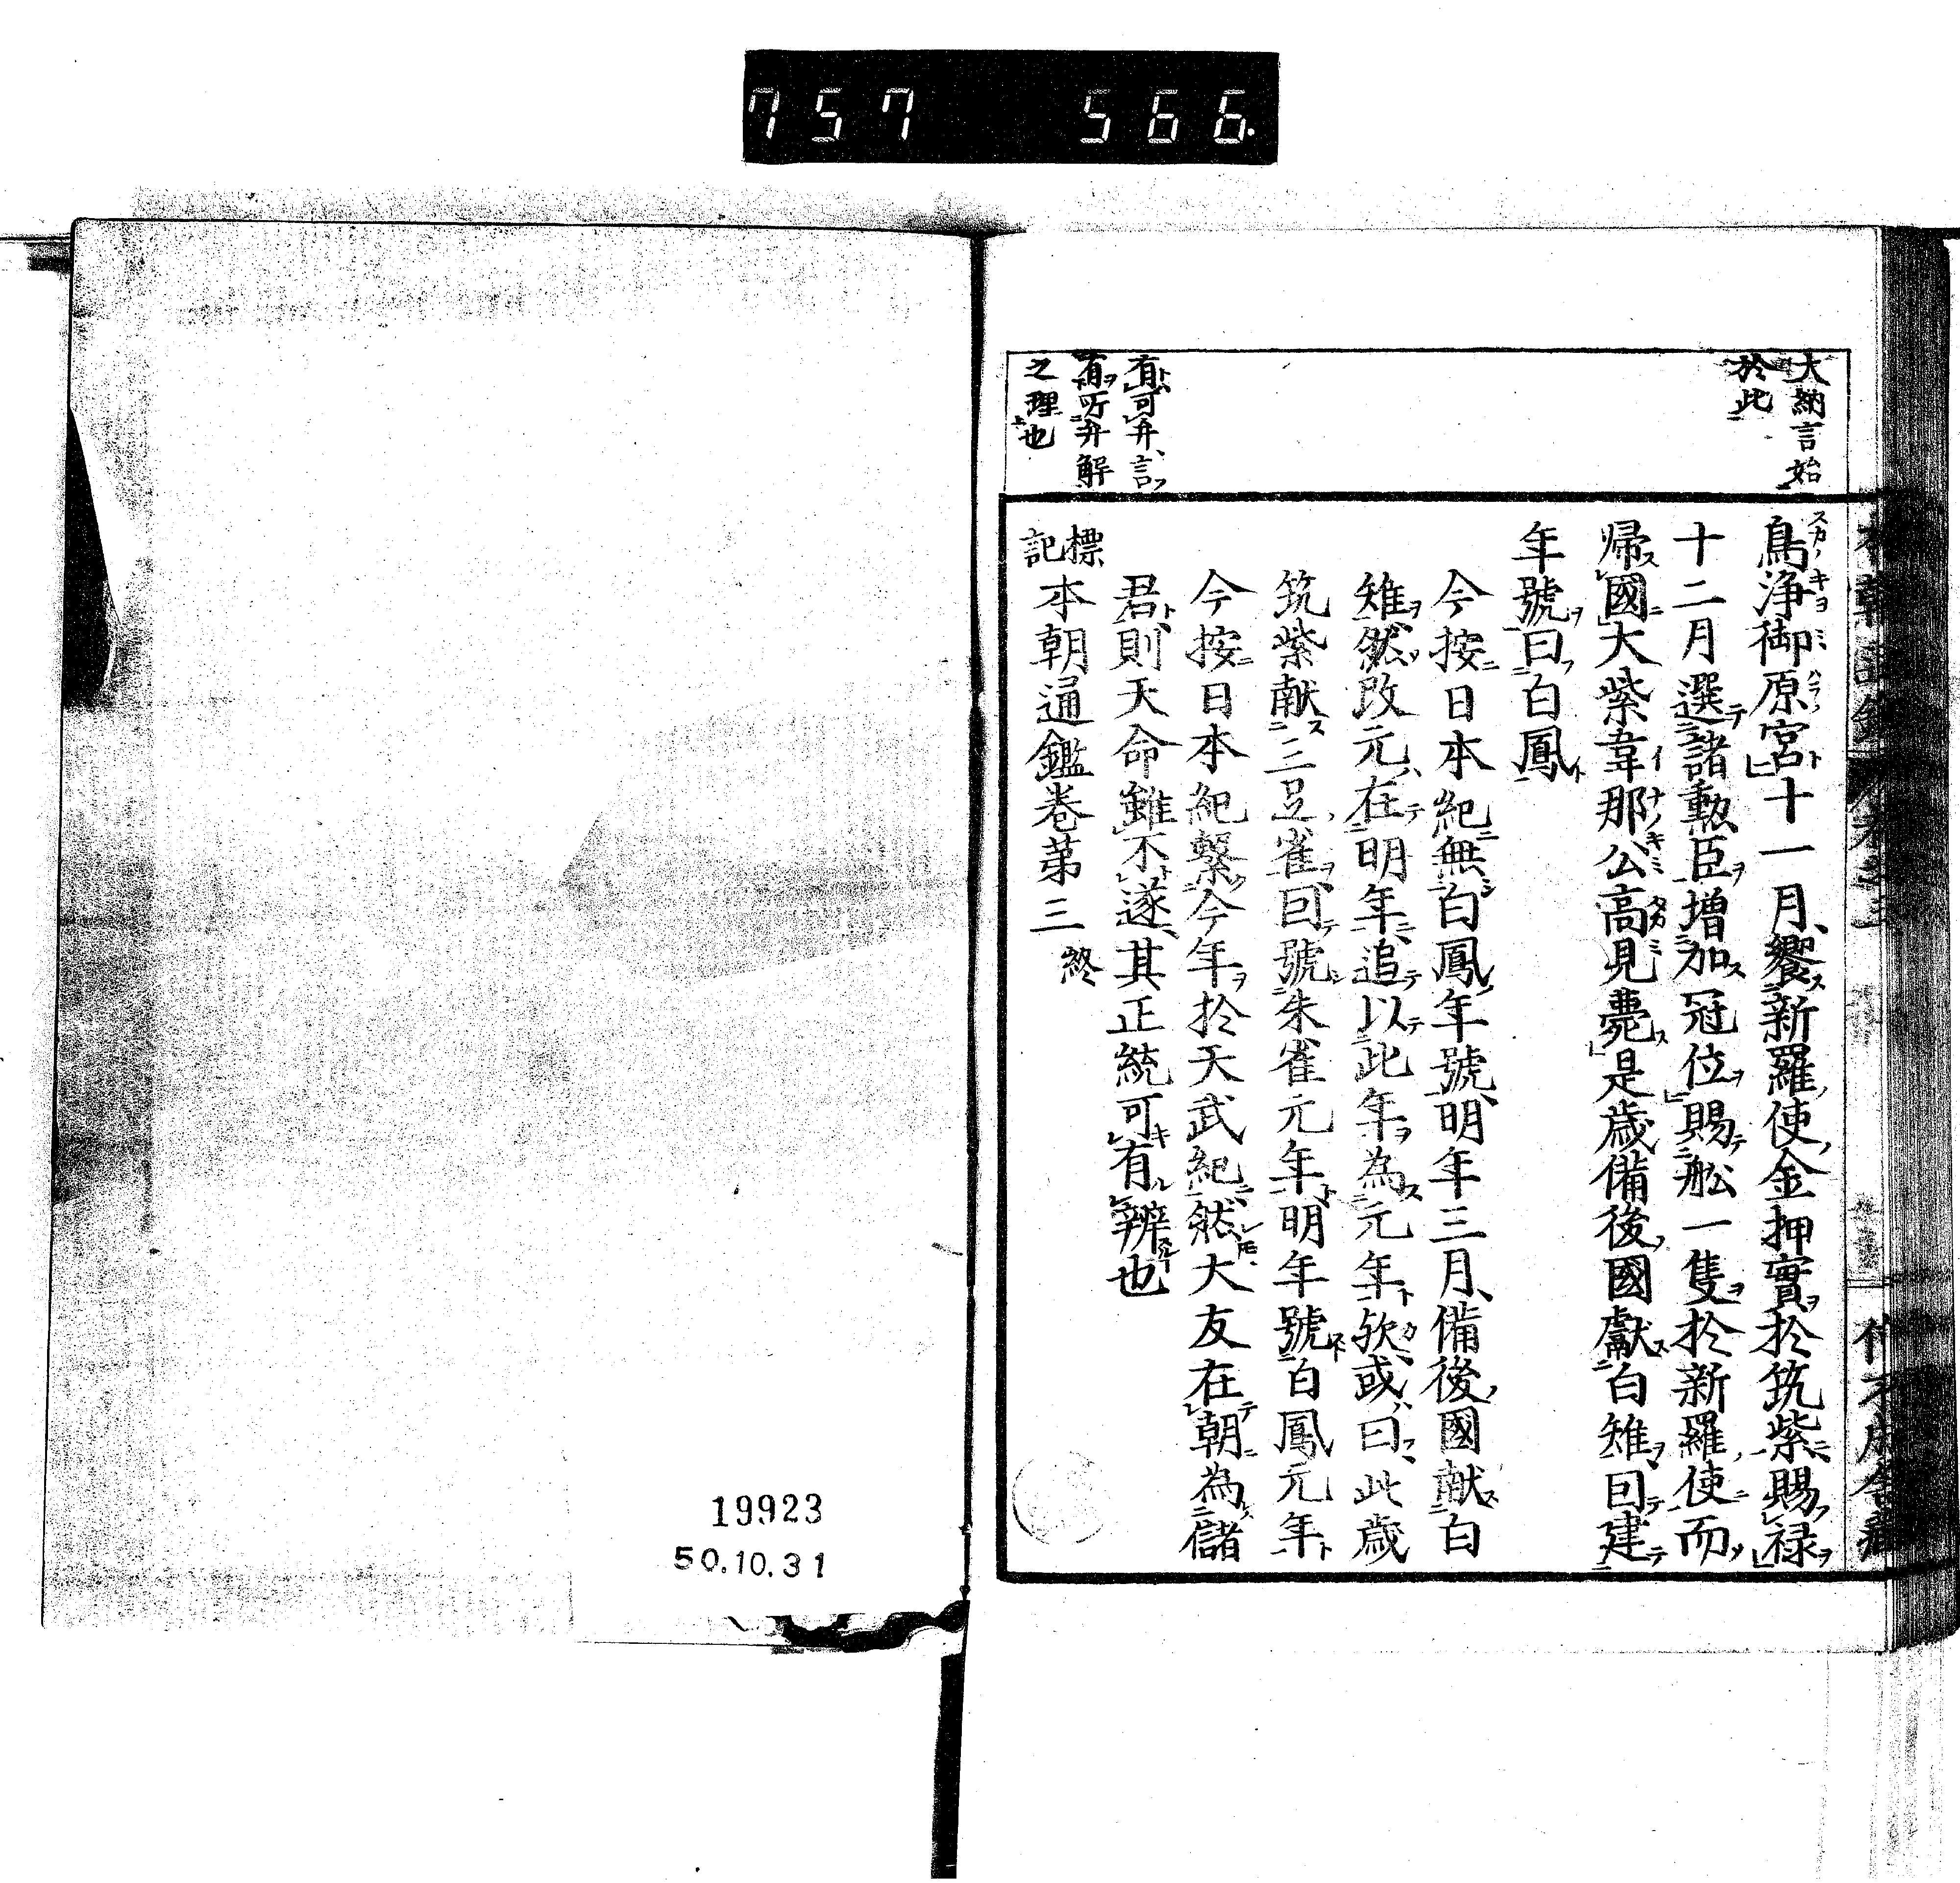 757 566.
大納言始
於此
鳥浄御原宮十一月饗新羅使金押實於筑紫賜禄
十二月選諸勲臣増加冠位賜舩一隻於新羅使而
帰國大紫韋那公高見薨是歳備後國獻白雉回建
年號曰白鳳
今按日本紀無白鳳年號明年三月備後國献白
雉然改元在明年追以此年為元年欤或曰此歳
筑紫献三足雀回號朱雀元年明年號白鳳元年
今按日本紀繋今年於天武紀然大友在朝為儲
君則天命雖不遂其正統可有辨也
有可弁言
有所弁解
之理也
標記
本朝通鑑巻第三 終
19923
50.10.31